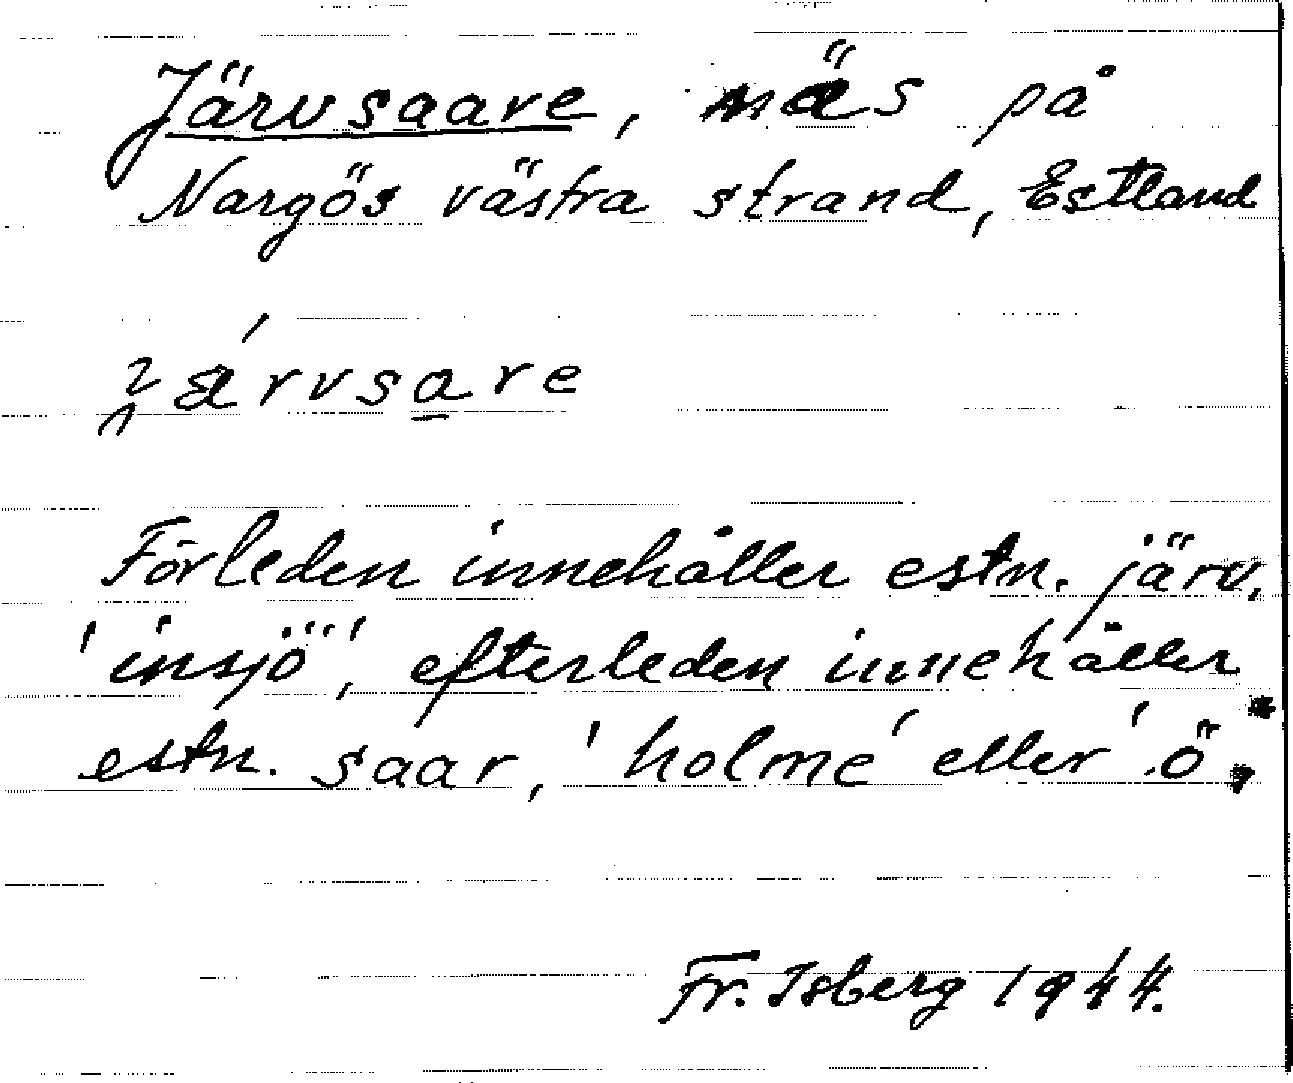 Järvsaare, näs på
Nargös västra strand, Estland
järvsare
Förleden innehåller estn. järv,
'insjö', efterleden innehåller
estn. saar, 'holme' eller 'ö'.
Fr. Isberg 1944.